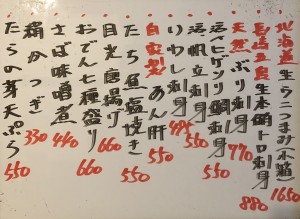 北海道生うにつまみ(小箱) 1650
長崎五島生本鮪トロ刺身 880
天然ぶり刺身 770
活〆ヒゲソリ鯛刺身 550
活帆立刺身 550
いわし刺身 495
自家製あん肝 550
たち魚塩焼き 550
目光唐揚げ 660
おでん七種盛り 660
さば味噌煮 440
絹かつぎ 330
たらの芽天ぷら 550